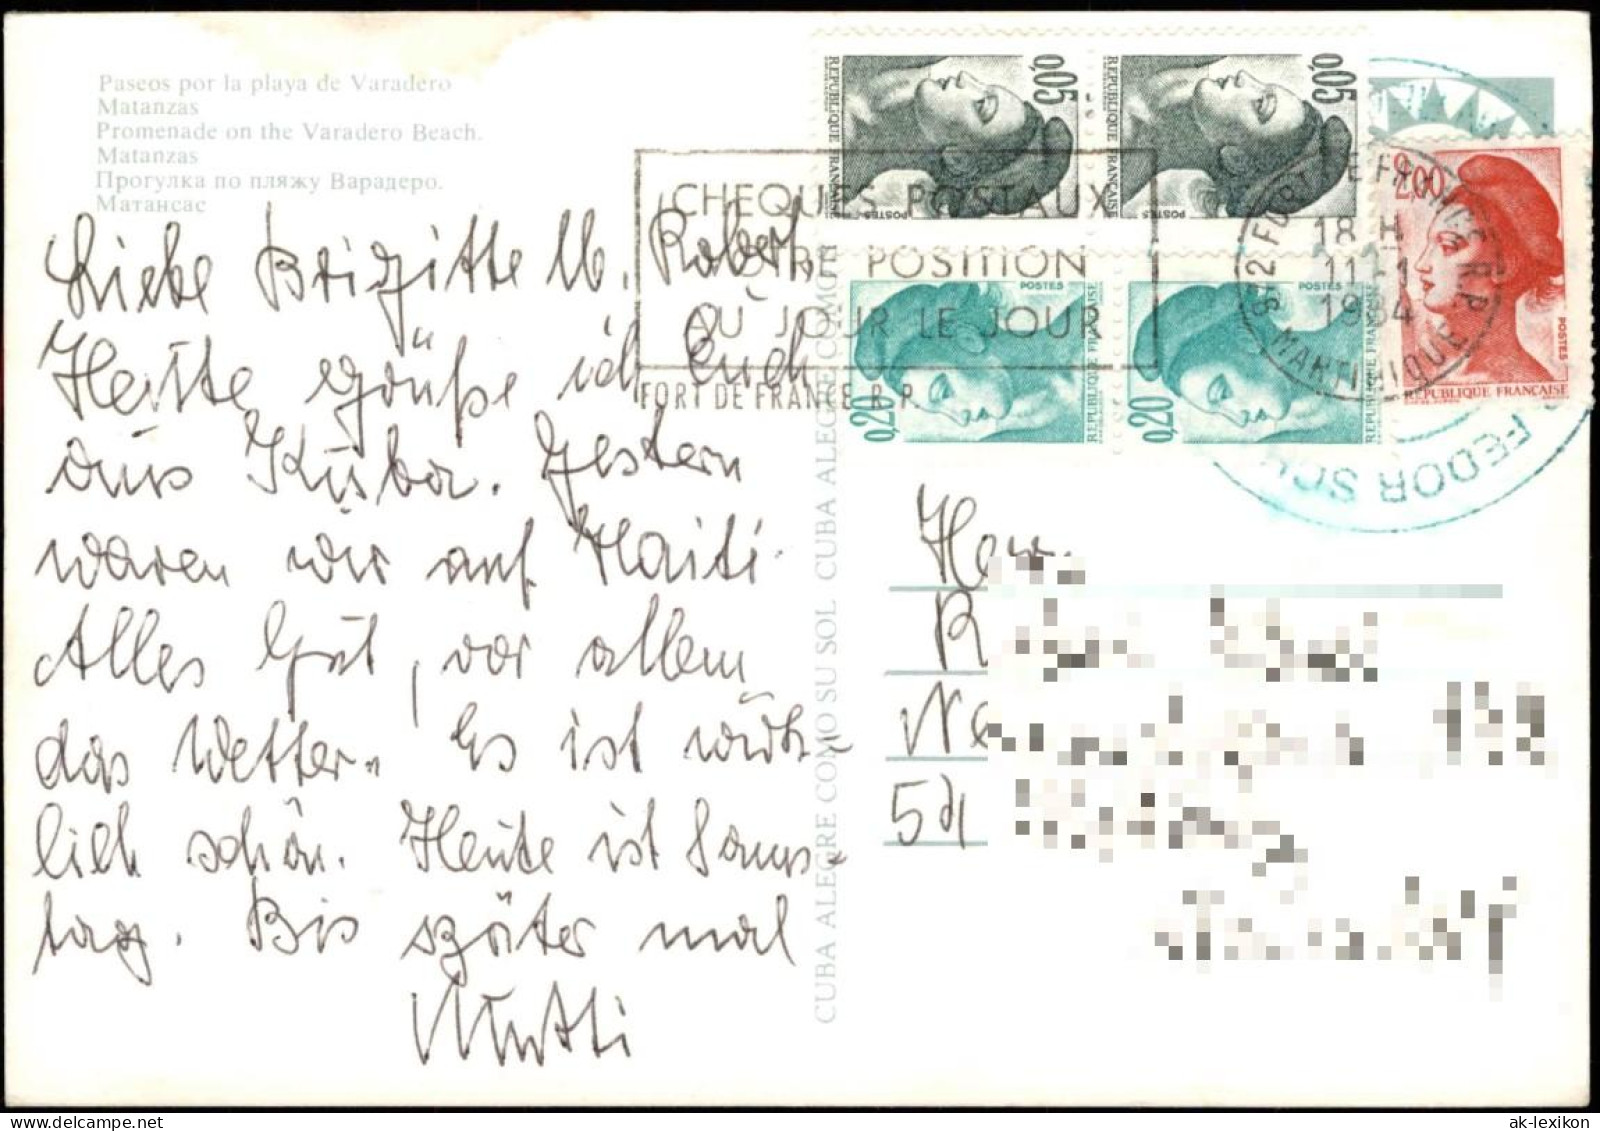 Paseos por la playa de Varadero
Matanzas
Promenade on the Varadero Beach.
Matanzas
Прогулка по пляжу Варадеро.
Матансас
Liebe Brigitte u. Robert,
Heute grüße ich Euch
aus Kuba. Gestern
waren wir auf Haiti.
Alles Gut, vor allem
das Wetter. Es ist wirk-
lich schön. Heute ist Sams-
tag. Bis später mal
Mutti
CUBA ALEGRE COMO SU SOL CUBA ALEGRE COMO
0,05
REPUBLIQUE FRANÇAISE
POSTES
0,05
REPUBLIQUE FRANÇAISE
POSTES
2,00
POSTES
REPUBLIQUE FRANÇAISE
0,20
POSTES
REPUBLIQUE FRANÇAISE
0,20
POSTES
REPUBLIQUE FRANÇAISE
CHEQUES POSTAUX
POSITION
AU JOUR LE JOUR
FORT DE FRANCE R.P.
972 FORT DE FRANCE R.P.
18 H
11-1
1984
MARTINIQUE
FEDOR
Herrn
R
Ne
54
ak-lexikon